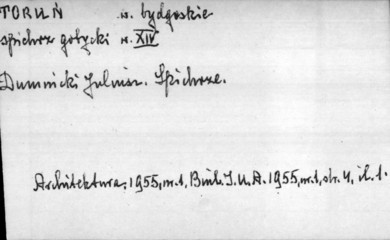 TORUŃ w. bydgoskie
spichrz gotycki w. XIV
Dumnicki Juliusz. Spichrze.
Architektura, 1955, nr. 1, Biul. I.U.A. 1955, nr. 1, str. 4, il. 1.